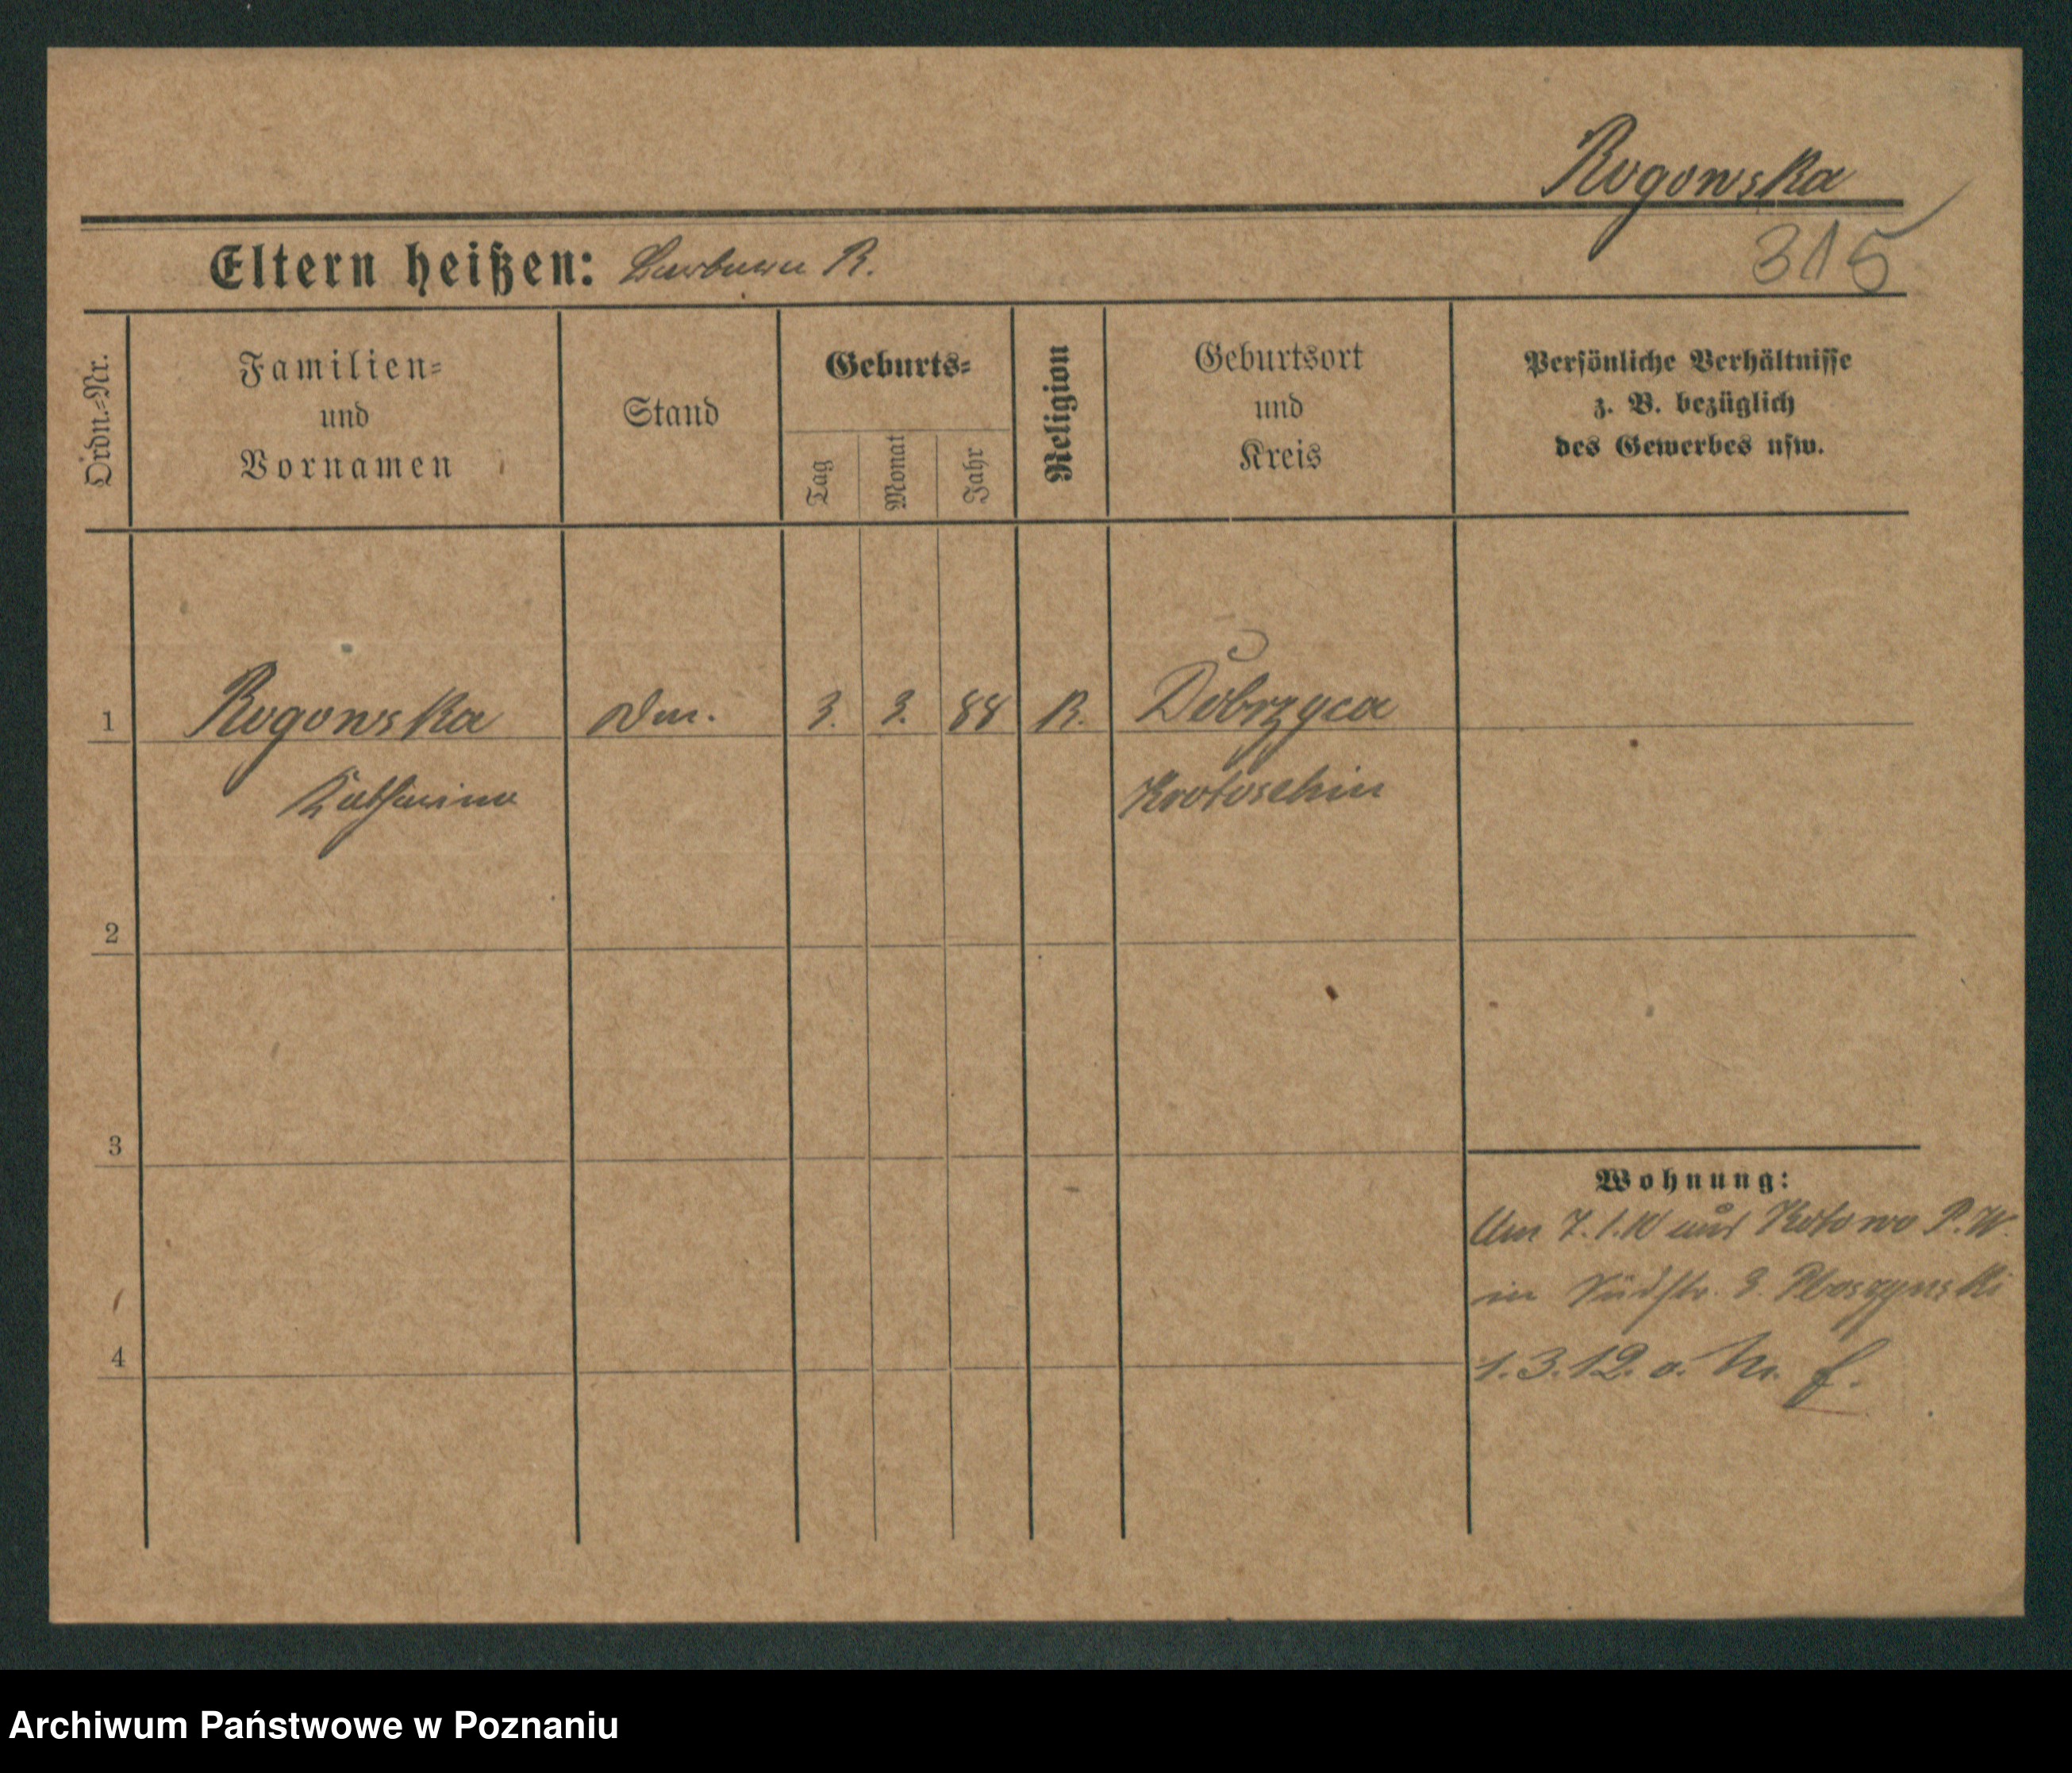 Rogowska
315
Eltern heißen: Barbara R.
Ordn.=Nr.
Familien=
und
Vornamen
Stand
Geburts=
Tag
Monat
Jahr
Religion
Geburtsort
und
Kreis
Persönliche Verhältnisse
z. B. bezüglich
des Gewerbes usw.
1 Rogowska 3. 3. 88 R. Dobrzyca
Katharina Krotoschin
2
3
Wohnung:
Am 7.1.10 aus Kotowo P.W.
in Südstr. 3.
4
1.3.12. o. M. f.
Archiwum Państwowe w Poznaniu